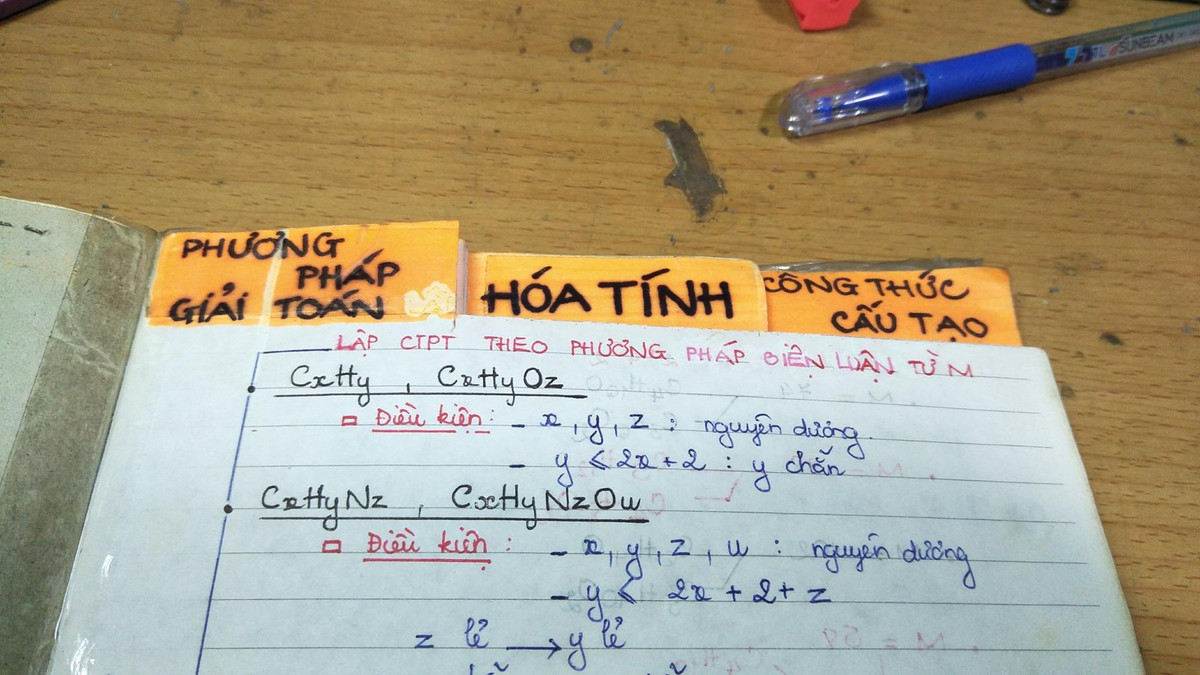 TL SUNBEAM
PHƯƠNG
PHÁP
GIẢI TOÁN
HÓA TÍNH
CÔNG THỨC
CẤU TẠO
LẬP CTPT THEO PHƯƠNG PHÁP BIỆN LUẬN TỪ M
CxHy , CxHyOz
Điều kiện: - x, y, z : nguyên dương.
- y ⩽ 2x + 2 : y chẵn
CxHyNz , CxHyNzOu
Điều kiện : - x, y, z, u : nguyên dương
- y ⩽ 2x + 2 + z
z lẻ → y lẻ